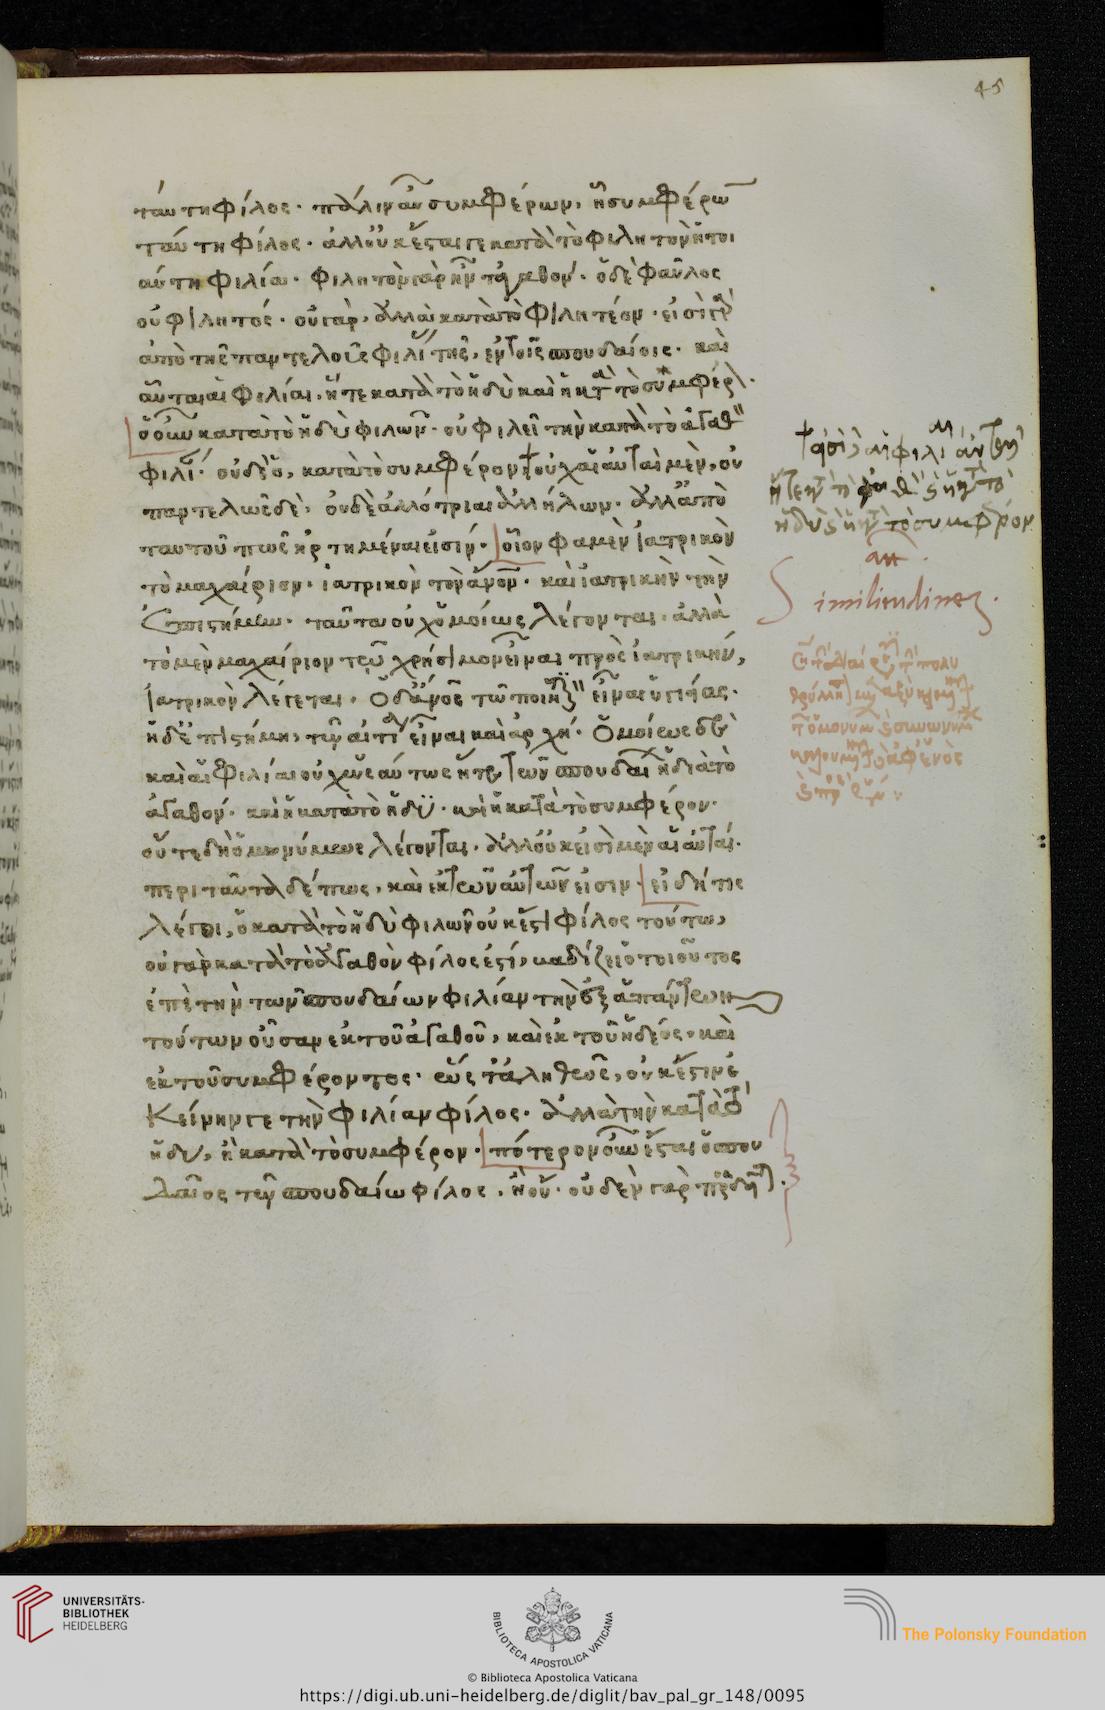 45
ταύτη φίλος. πάλιν ἂν συμφέρων, ἢ συμφέρων
ταύτη φίλος. ἀλλ' οὐκ ἔσται γε κατὰ τὸ φιλητὸν ἥτοι
αύτη φιλία. φιλητὸν γὰρ ἦν τἀγαθόν. ὁ δὲ φαῦλος
οὐ φιλητός. οὐ γάρ, ἀλλὰ κατὰ τὸ φιλητέον. εἰσὶ γὰρ
ἀπὸ τῆς παντελοῦς φιλίας τῆς, ἐν τοῖς σπουδαίοις. καὶ
αὗται αἱ φιλίαι, ἥ τε κατὰ τὸ ἡδὺ καὶ ἡ κατὰ τὸ συμφέρον.
ὁ οὖν κατὰ τὸ ἡδὺ φιλῶν. οὐ φιλεῖ τὴν κατὰ τὸ ἀγαθὸν
φιλίαν. οὐδὲ ὁ, κατὰ τὸ συμφέρον οὐχ αἱ αὐταὶ μὲν, οὐ
παντελῶς δὲ, οὐδὲ ἀλλότριαι ἀλλήλων. ἀλλ' ἀπὸ
ταυτοῦ πως ἠρτημέναι εἰσίν. οἷον φαμὲν ἰατρικὸν
τὸ μαχαίριον. ἰατρικὸν τὸν ἄνον. καὶ ἰατρικὴν τὴν
ἐπιστήμην. ταῦτα οὐχ ὁμοίως λέγονται. ἀλλὰ
τὸ μὲν μαχαίριον τῷ χρήσιμον εἶναι πρὸς ἰατρικήν,
ἰατρικὸν λέγεται. ὁ δ' ἄνος τῷ ποιητικὸς εἶναι ὑγιείας.
ἡ δ' ἐπιστήμη, τῷ αἰτία εἶναι καὶ ἀρχή. ὁμοίως δὲ
καὶ αἱ φιλίαι οὐχ ὡσαύτως ἥ τε τῶν σπουδαίων ἡ διὰ τὸ
ἀγαθόν. καὶ ἡ κατὰ τὸ ἡδύ. καὶ ἡ κατὰ τὸ συμφέρον.
οὔτε δὴ ὁμωνύμως λέγονται. ἀλλ' οὐκ εἰσὶ μὲν αἱ αὐταί.
περὶ ταῦτα δέ πως, καὶ ἐκ τῶν αὐτῶν εἰσιν. εἰ δή τις
λέγοι, ὁ κατὰ τὸ ἡδὺ φιλῶν οὐκ ἔστι φίλος τούτῳ,
οὐ γὰρ κατὰ τὸ ἀγαθὸν φίλος ἐστί, βαδίζει ὁ τοιοῦτος
ἐπὶ τὴν τῶν σπουδαίων φιλίαν τὴν ἐξ ἁπάντων
τούτων οὖσαν ἐκ τοῦ ἀγαθοῦ, καὶ ἐκ τοῦ ἡδέος. καὶ
ἐκ τοῦ συμφέροντος. ὥστ' ἀληθῶς, οὐκ ἔστιν ἐ
κείνην γε τὴν φιλίαν φίλος. ἀλλὰ τὴν κατὰ τὸ
ἡδὺ, ἢ κατὰ τὸ συμφέρον. πότερον οὖν ἔσται ὁ σπου
δαῖος τῷ σπουδαίῳ φίλος. ἢ οὔ. οὐδὲν γὰρ προσδεῖται.
Similitudines.
UNIVERSITÄTS-
BIBLIOTHEK
HEIDELBERG
BIBLIOTECA APOSTOLICA VATICANA
The Polonsky Foundation
© Biblioteca Apostolica Vaticana
https://digi.ub.uni-heidelberg.de/diglit/bav_pal_gr_148/0095